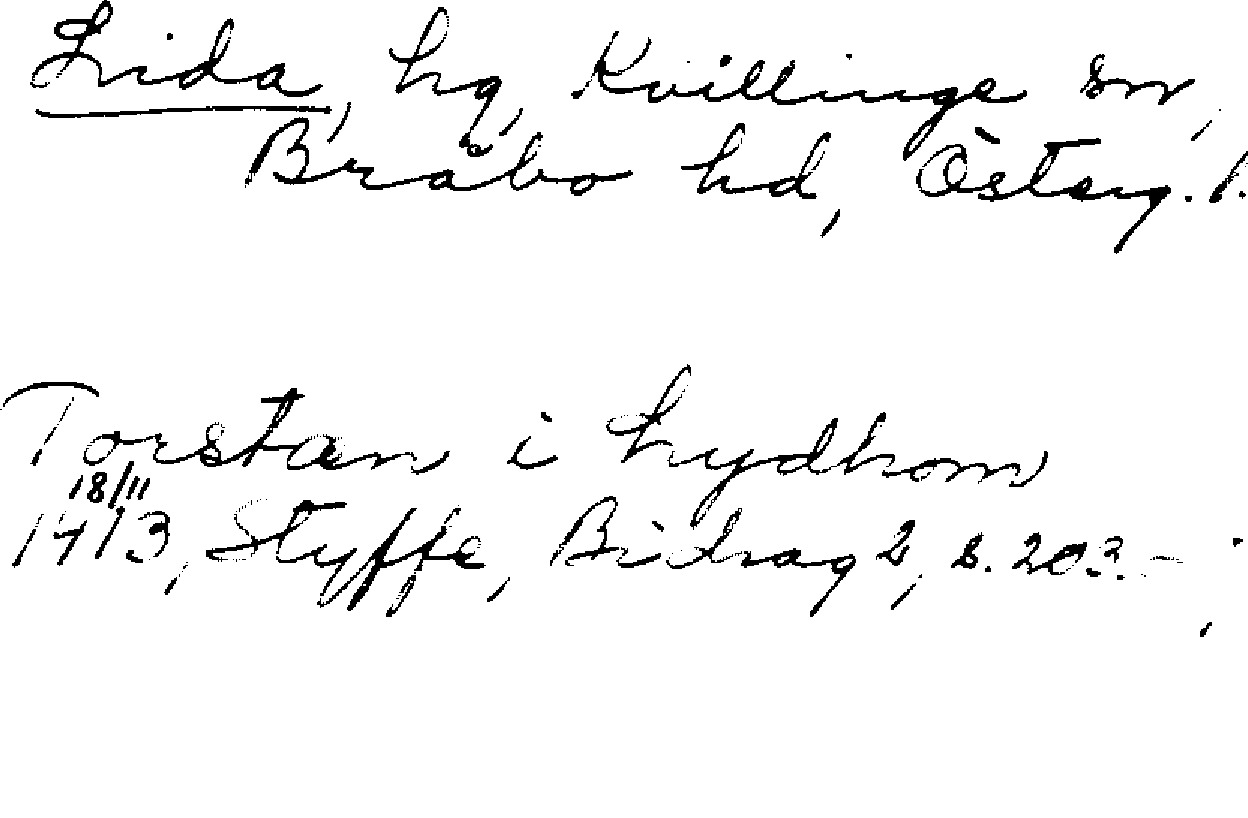 Lida, hg, Kvillinge sn,
Bråbo hd, Österg. l.
Torstæn i hydhom
18/11
1413, Styffe, Bidrag 2, s. 203. –